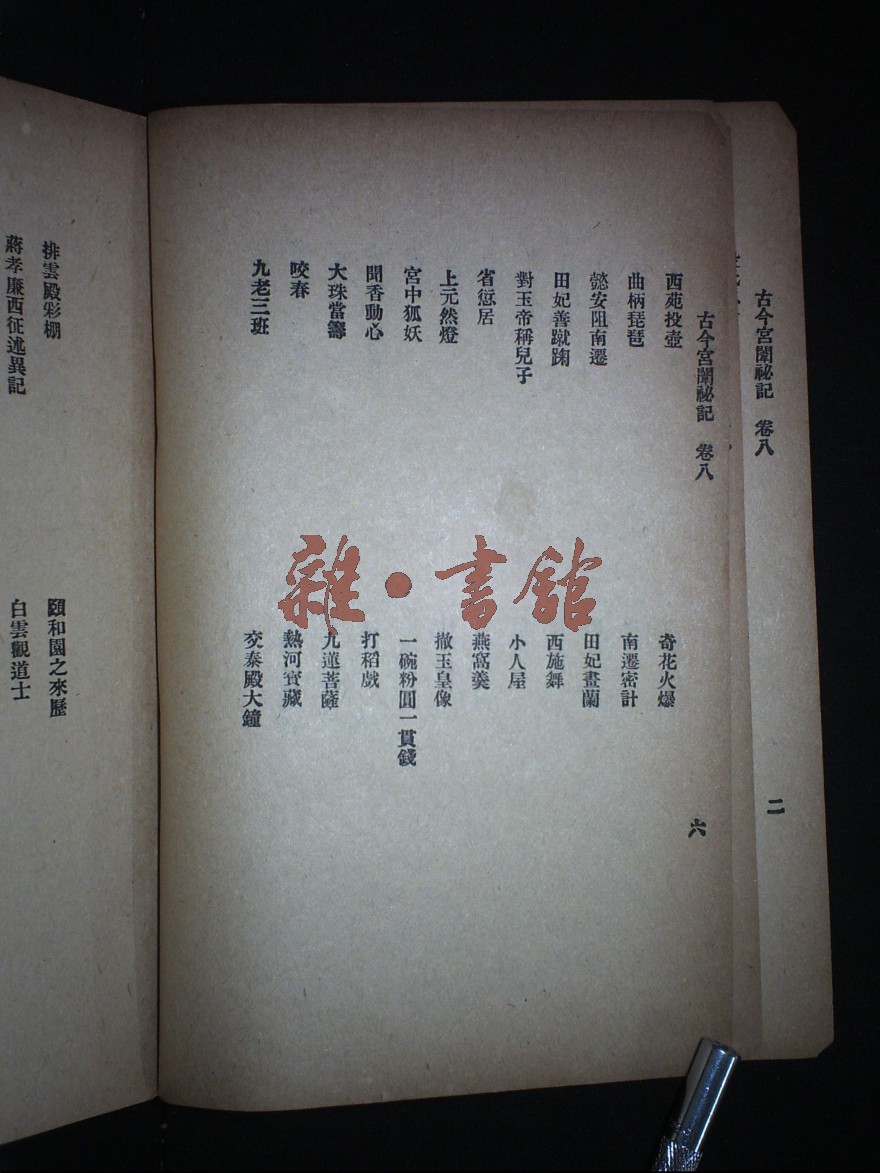 古今宮闈祕記 卷八 二
古今宮闈祕記 卷八 六
西苑投壺 奇花火爆
曲柄琵琶 南遷密計
懿安阻南遷 田妃畫蘭
田妃善蹴踘 西施舞
對玉帝稱兒子 小人屋
省愆居 燕窩羹
上元然燈 撤玉皇像
宮中狐妖 一碗粉圓一貫錢
聞香動心 打稻戲
大珠當籌 九蓮菩薩
咬春 熱河寶藏
九老三班 交泰殿大鐘
排雲殿彩棚 頤和園之來歷
蔣孝廉西征述異記 白雲觀道士
雜·書館